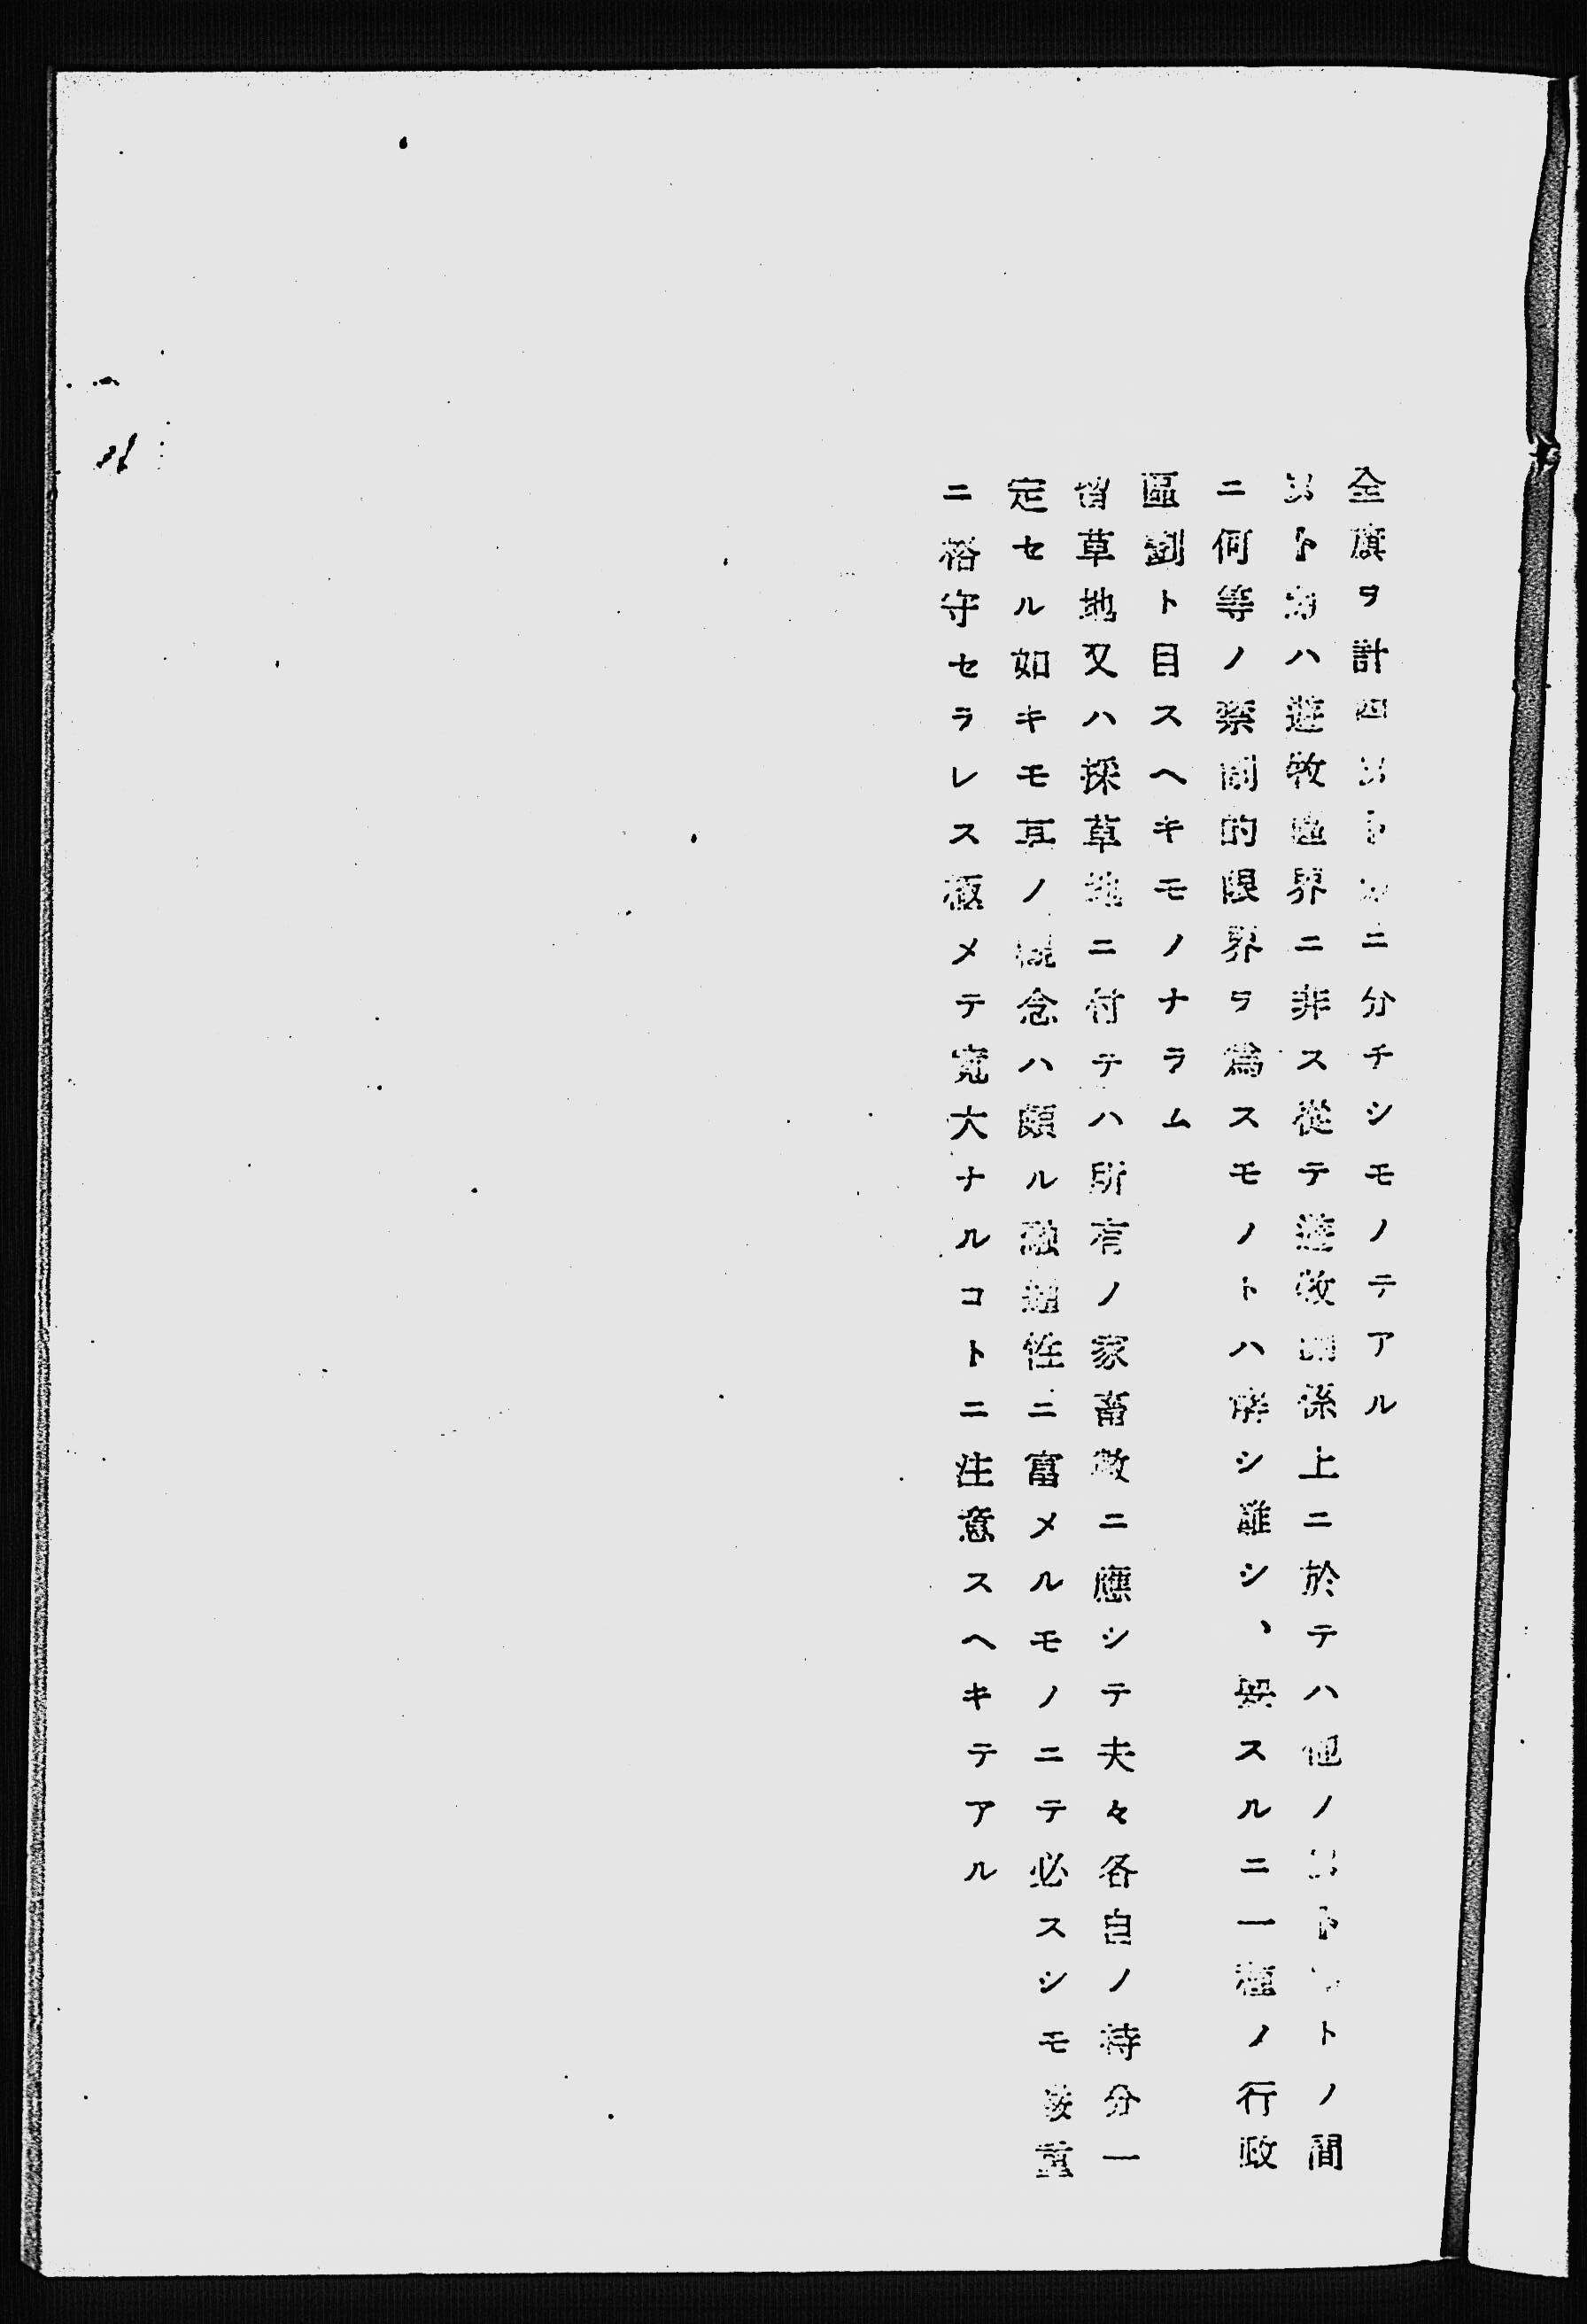 全旗ヲ計四ヌトクニ分チシモノテアル
ヌトクハ遊牧區界ニ非ス從テ遊牧關係上ニ於テハ他ノヌトクトノ間
ニ何等ノ禁制的限界ヲ爲スモノトハ解シ難シ、要スルニ一種ノ行政
區劃ト目スヘキモノナラム
留草地又ハ採草地ニ付テハ所有ノ家畜數ニ應シテ夫々各自ノ持分一
定セル如キモ其ノ概念ハ頗ル融通性ニ富メルモノニテ必スシモ嚴重
ニ格守セラレス極メテ寬大ナルコトニ注意スヘキテアル